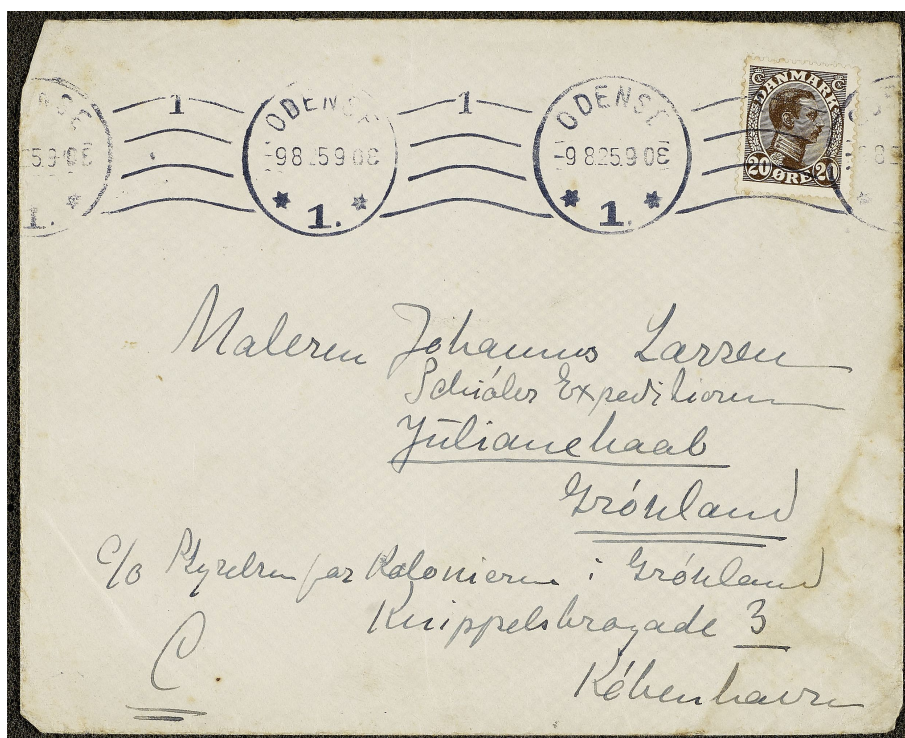 ODENSE
1
ODENSE
-9 8.25.9 0E
1.
1
ODENSE
-9 8.25.9 0E
1.
DANMARK
20 ØRE 20
Maleren Johannes Larsen
Schiöler Expeditionen
Julianehaab
Grönland
c/o Styrelsen for Kolonierne i Grönland
Knippelsbrogade 3
C
Köbenhavn